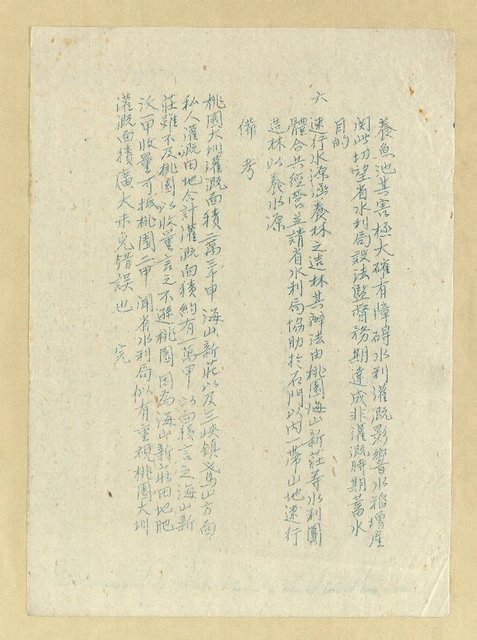 養魚池其害極大確有障碍水利灌溉影響水稻增産
関此切望省水利局設法監督務期達成非灌溉時期蓄水
目的
六 速行水源涵養林之造林其辦法由桃園海山新莊等水利團
體合共經營並請省水利局協助於石門以内一帶山地速行
造林以養水源
備考
桃園大圳灌溉面積二萬二千甲 海山新莊以及三峽鎮鶯山方面
私人灌溉田地合計灌溉面積約有一萬甲 以面積言之海山新
莊雖不及桃園 以收量言之不遜桃園 因為海山新莊田地肥
沃一甲收量可抵桃園二甲 聞省水利局似有重視桃園大圳
灌溉面積廣大未免錯誤也 完